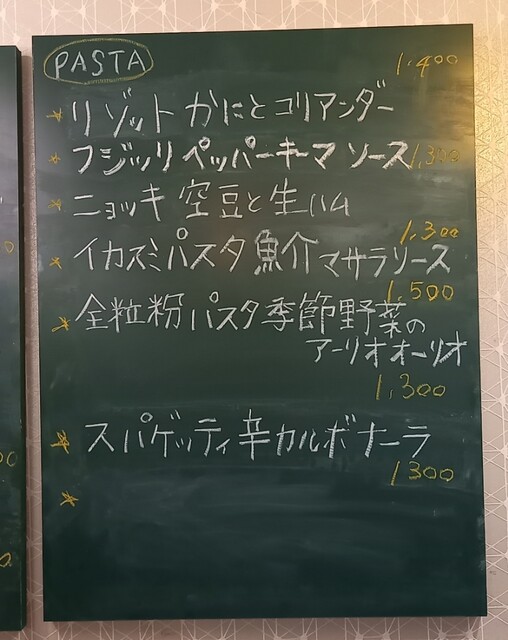 PASTA
1.400
★ リゾット かにとコリアンダー
★ フジッリ ペッパーキーマ ソース 1,300
★ ニョッキ 空豆と生ハム
1,300
★ イカスミパスタ 魚介マサラソース
1,500
★ 全粒粉パスタ季節野菜の
アーリオオーリオ
1,300
★ スパゲッティ辛カルボナーラ
1300
★